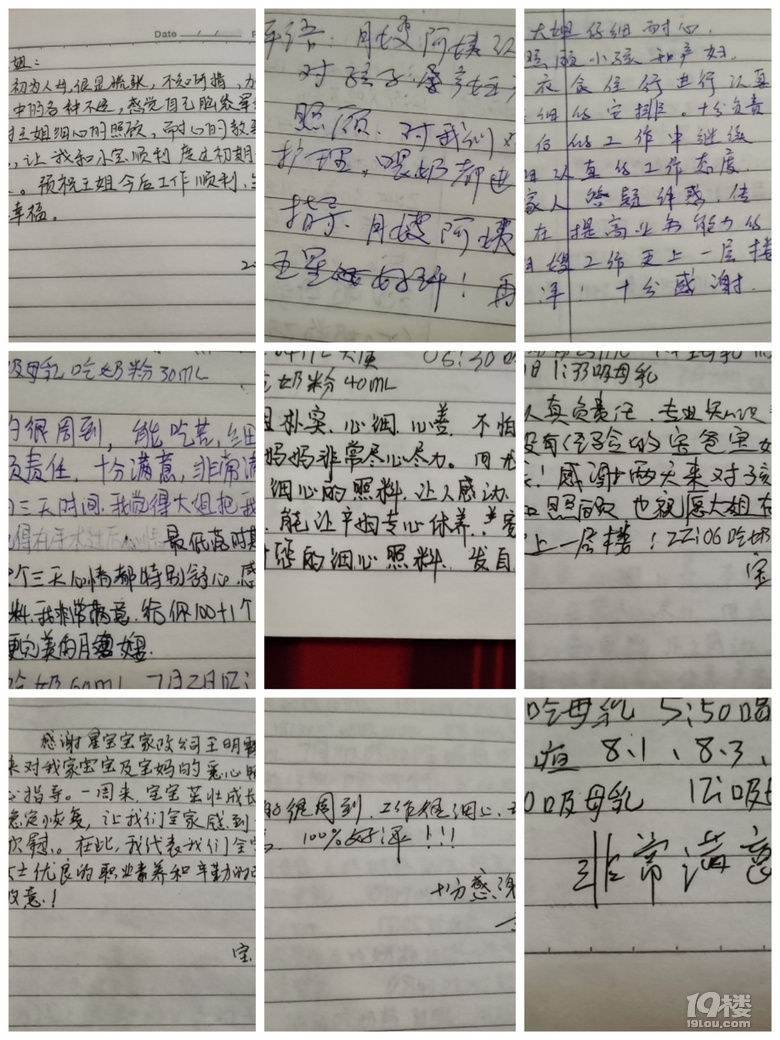 Date
姐:
初为人母,很是慌张,不知所措,
中的各种不适,感觉自己
王姐细心的照顾,耐心的教
,让我和小宝顺利度过初期
。预祝王姐今后工作顺利,
幸福。
评语:月嫂阿姨
对孩子
照顾.对我们
护理,喂奶都
指导.月嫂阿姨
五星好评!再
大姐仔细耐心.
照顾小孩和产妇,
衣食住行进行认真
细的安排。十分负责
后的工作中继续
认真的工作态度.
家人答疑解惑.
在提高业务能力的
嫂工作更上一层楼
评!十分感谢.
吸母乳吃奶粉30mL
的很周到,能吃苦,细
负责任,十分满意,非常满
三天时间.我觉得大姐把我
最低落时期
个三天心情都特别舒心.感
料.我非常满意.给你100+1个
更完美的月嫂.
吃奶60mL 7月2日
06:30
吃奶粉40mL
朴实.心细.心善.不怕
妈妈非常尽心尽力。
细心的照料.让人感动.
能让产妇专心休养.
的细心照料.发自
日1:33吸母乳
认真负责任.专业知识
没有经验的宝爸宝妈
!感谢两天来对孩
照顾也祝愿大姐
上一层楼!22:06吃奶
宝
感谢星宝宝家政公司王明
来对我家宝宝及宝妈的悉心照
心指导。一周来,宝宝茁壮成长
稳定恢复,让我们全家感到
欣慰。在此,我代表我们全
女士优良的职业素养和辛勤的
敬意!
宝
的很周到.工作很细心.
100%好评!!!
十分感谢
吃母乳 5:50喝
疸 8.1、8.3、
吸母乳 12:吸
非常满意
19楼
19lou.com